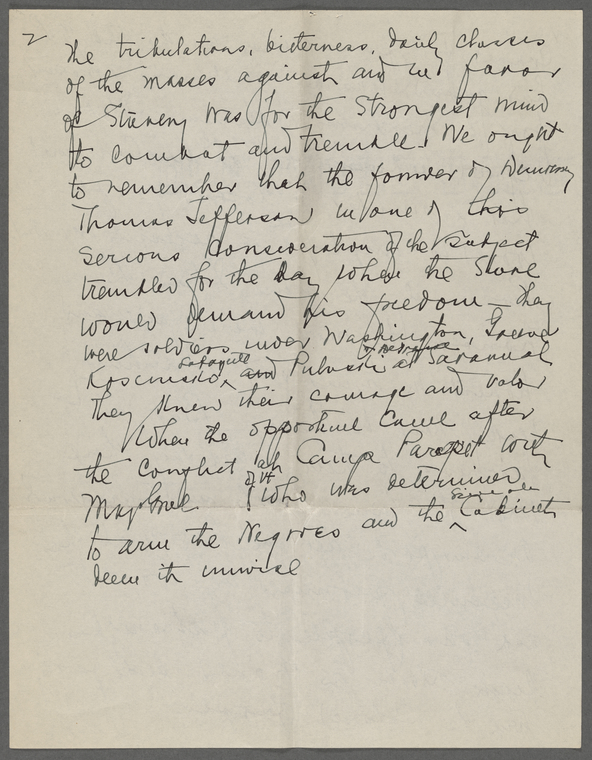 2
The tribulations, bitterness, daily clashes
of the masses against and in favor
of Slavery was for the Strongest mind
to combat and tremble. We ought
to remember that the founder of Democracy
Thomas Jefferson in one of his
Serious Consideration of the Subject
trembled for the day when the Slave
would demand his freedom — They
were soldiers under Washington, Greene
Lafayette
Kosciusko and Pulaski at Savannah
They knew their courage and valor
When the opportune Came after
the Conflict at Camp Parapet with
Maj Genl who was determined
to arm the Negroes and the Cabinet
deem it unwise